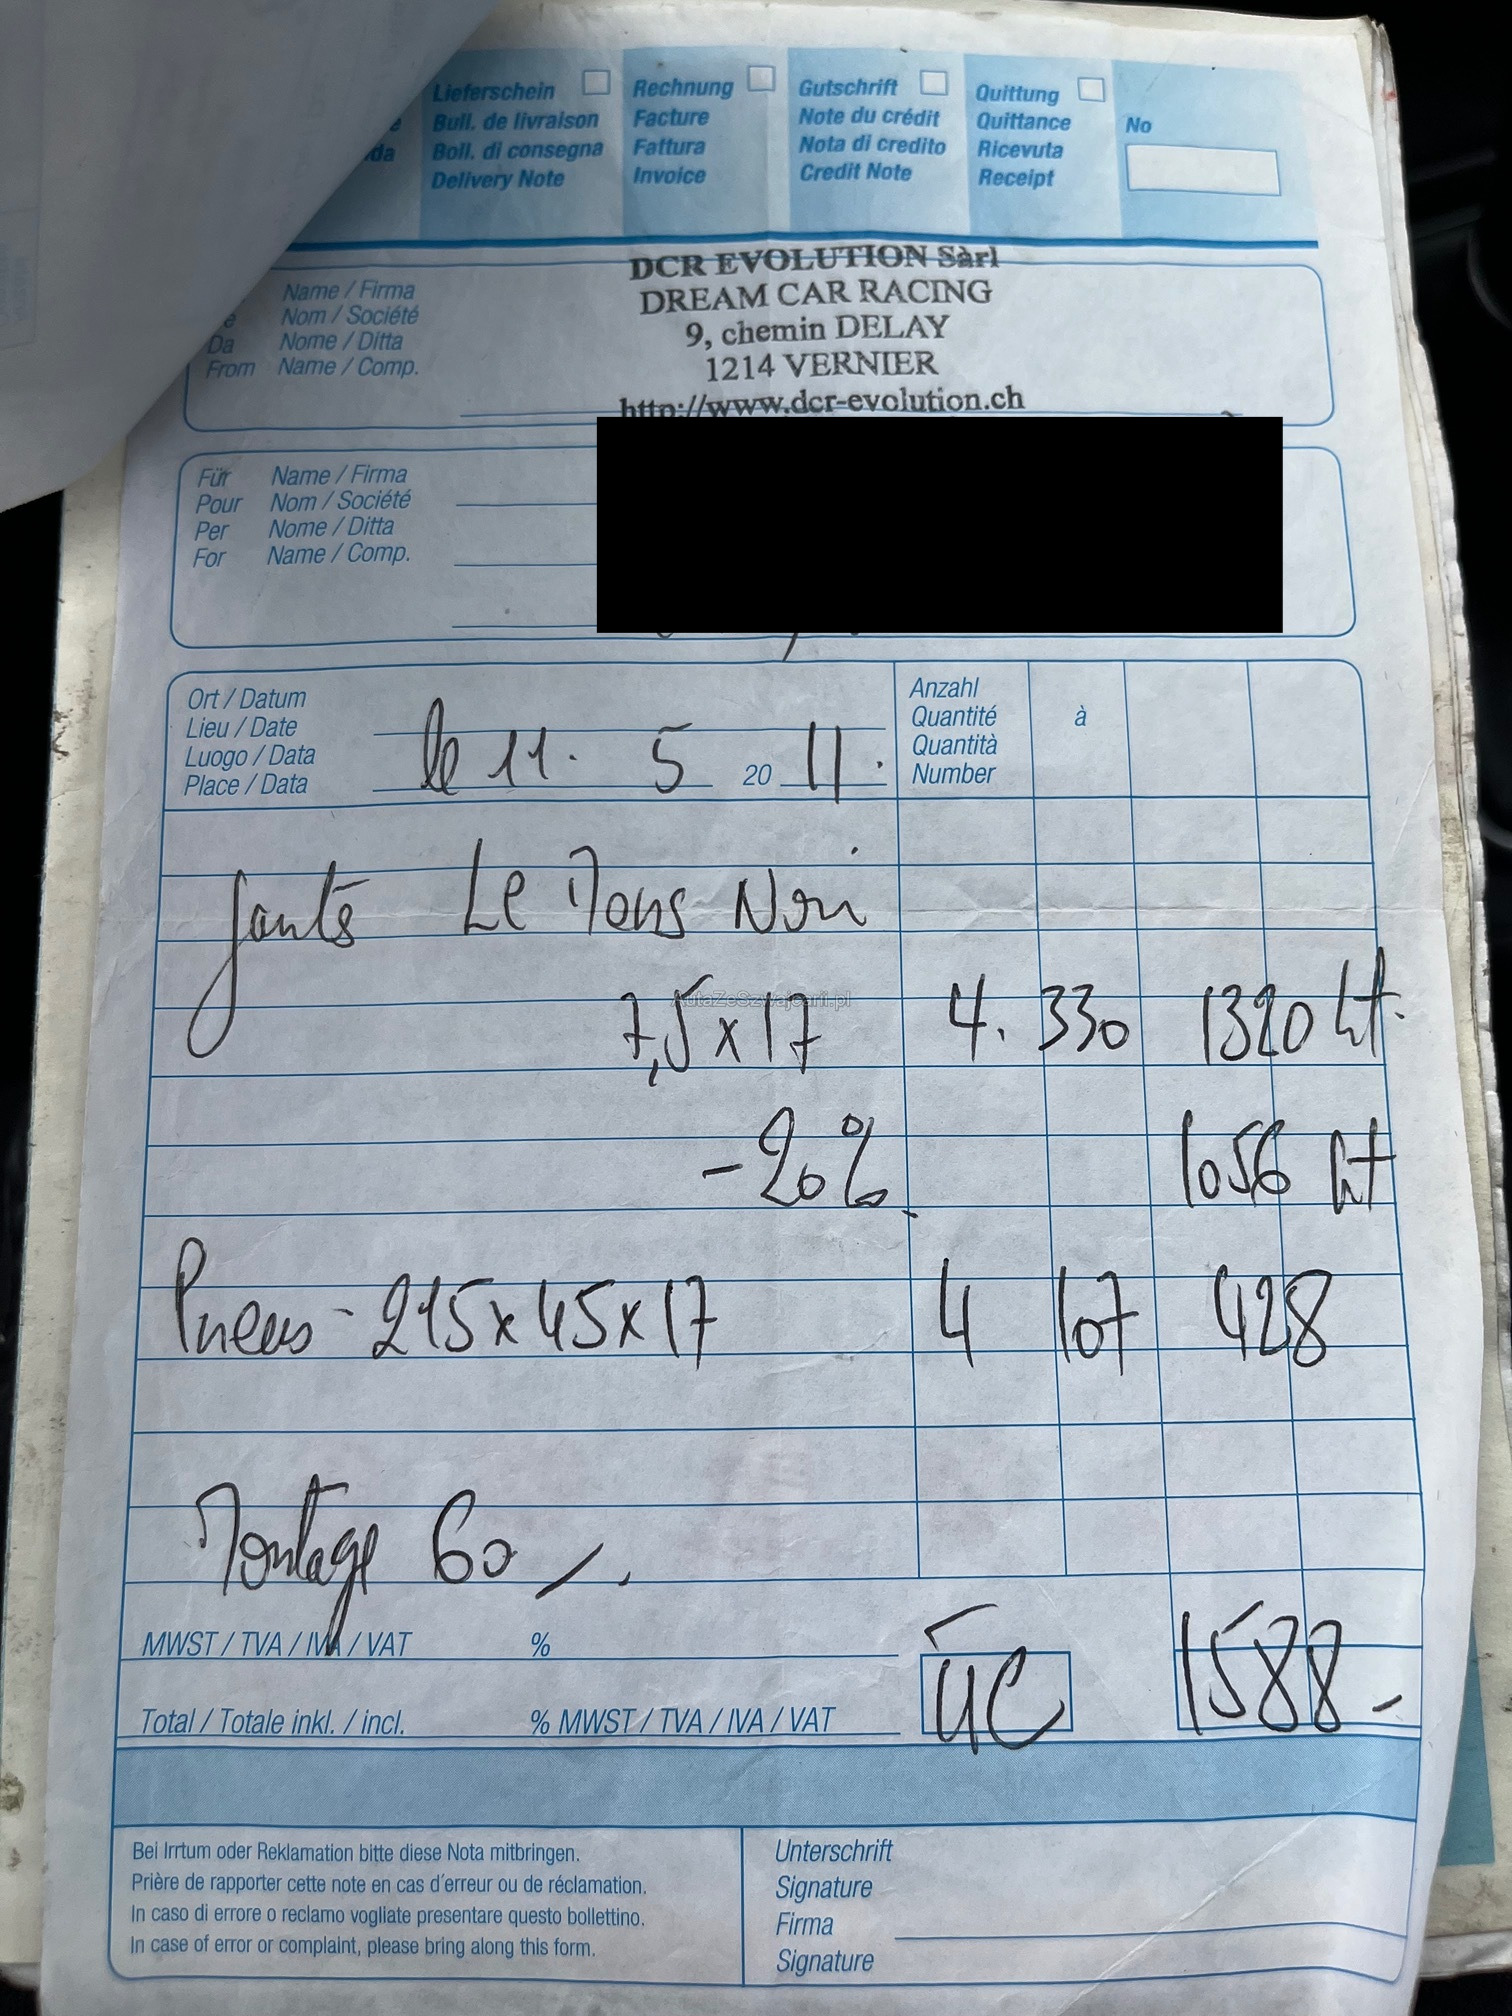 Lieferschein Rechnung Gutschrift Quittung
e Bull. de livraison Facture Note du crédit Quittance No
da Boll. di consegna Fattura Nota di credito Ricevuta
Delivery Note Invoice Credit Note Receipt
DCR EVOLUTION Sàrl
DREAM CAR RACING
9, chemin DELAY
1214 VERNIER
http://www.dcr-evolution.ch
Name / Firma
e Nom / Société
Da Nome / Ditta
From Name / Comp.
Für Name / Firma
Pour Nom / Société
Per Nome / Ditta
For Name / Comp.
Ort / Datum
Lieu / Date
Luogo / Data
Place / Data
le 11. 5 20 11.
Anzahl
Quantité à
Quantità
Number
Jantes Le Mans Noir
AutaZeSzwajcarii.pl
7,5 x 17 4. 330 1320 ht.
-20% 1056 ht
Pneus - 215x45x17 4 107 428
Montage 60
MWST / TVA / IVA / VAT %
Total / Totale inkl. / incl. % MWST / TVA / IVA / VAT 1588.-
Bei Irrtum oder Reklamation bitte diese Nota mitbringen.
Prière de rapporter cette note en cas d'erreur ou de réclamation.
In caso di errore o reclamo vogliate presentare questo bollettino.
In case of error or complaint, please bring along this form.
Unterschrift
Signature
Firma
Signature